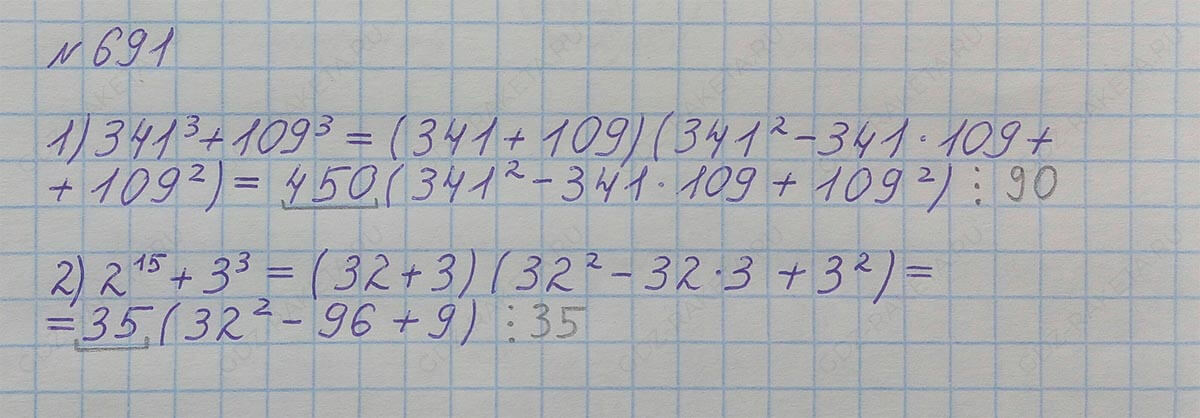 № 691
1) 341³ + 109³ = (341 + 109) (341² - 341 · 109 +
+ 109²) = 450 (341² - 341 · 109 + 109²) ⋮ 90
2) 2¹⁵ + 3³ = (32 + 3) (32² - 32 · 3 + 3²) =
= 35 (32² - 96 + 9) ⋮ 35